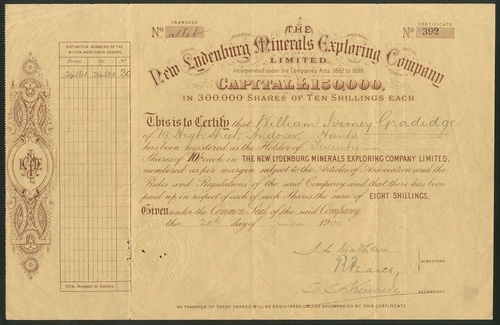 TRANSFER
No allot
CERTIFICATE
No 392
THE
New Lydenburg Minerals Exploring Company
LIMITED.
Incorporated under the Companies Acts 1862 to 1898.
CAPITAL £150,000,
IN 300,000 SHARES OF TEN SHILLINGS EACH.
This is to Certify that William Ivemey Gradidge
of 19 High Street, Andover, Hants
has been registered as the Holder of Twenty
Shares of 10/- each in THE NEW LYDENBURG MINERALS EXPLORING COMPANY LIMITED,
numbered as per margin subject to the Articles of Association and the
Rules and Regulations of the said Company and that there has been
paid up on respect of each of such Shares the sum of EIGHT SHILLINGS.
Given under the Common Seal of the said Company,
this 20th day of June 1900
DIRECTORS
SECRETARY
NO TRANSFER OF THESE SHARES WILL BE REGISTERED UNLESS ACCOMPANIED BY THIS CERTIFICATE.
DISTINCTIVE NUMBERS OF THE
WITHIN MENTIONED SHARES
From To No
20
TOTAL NUMBER OF SHARES